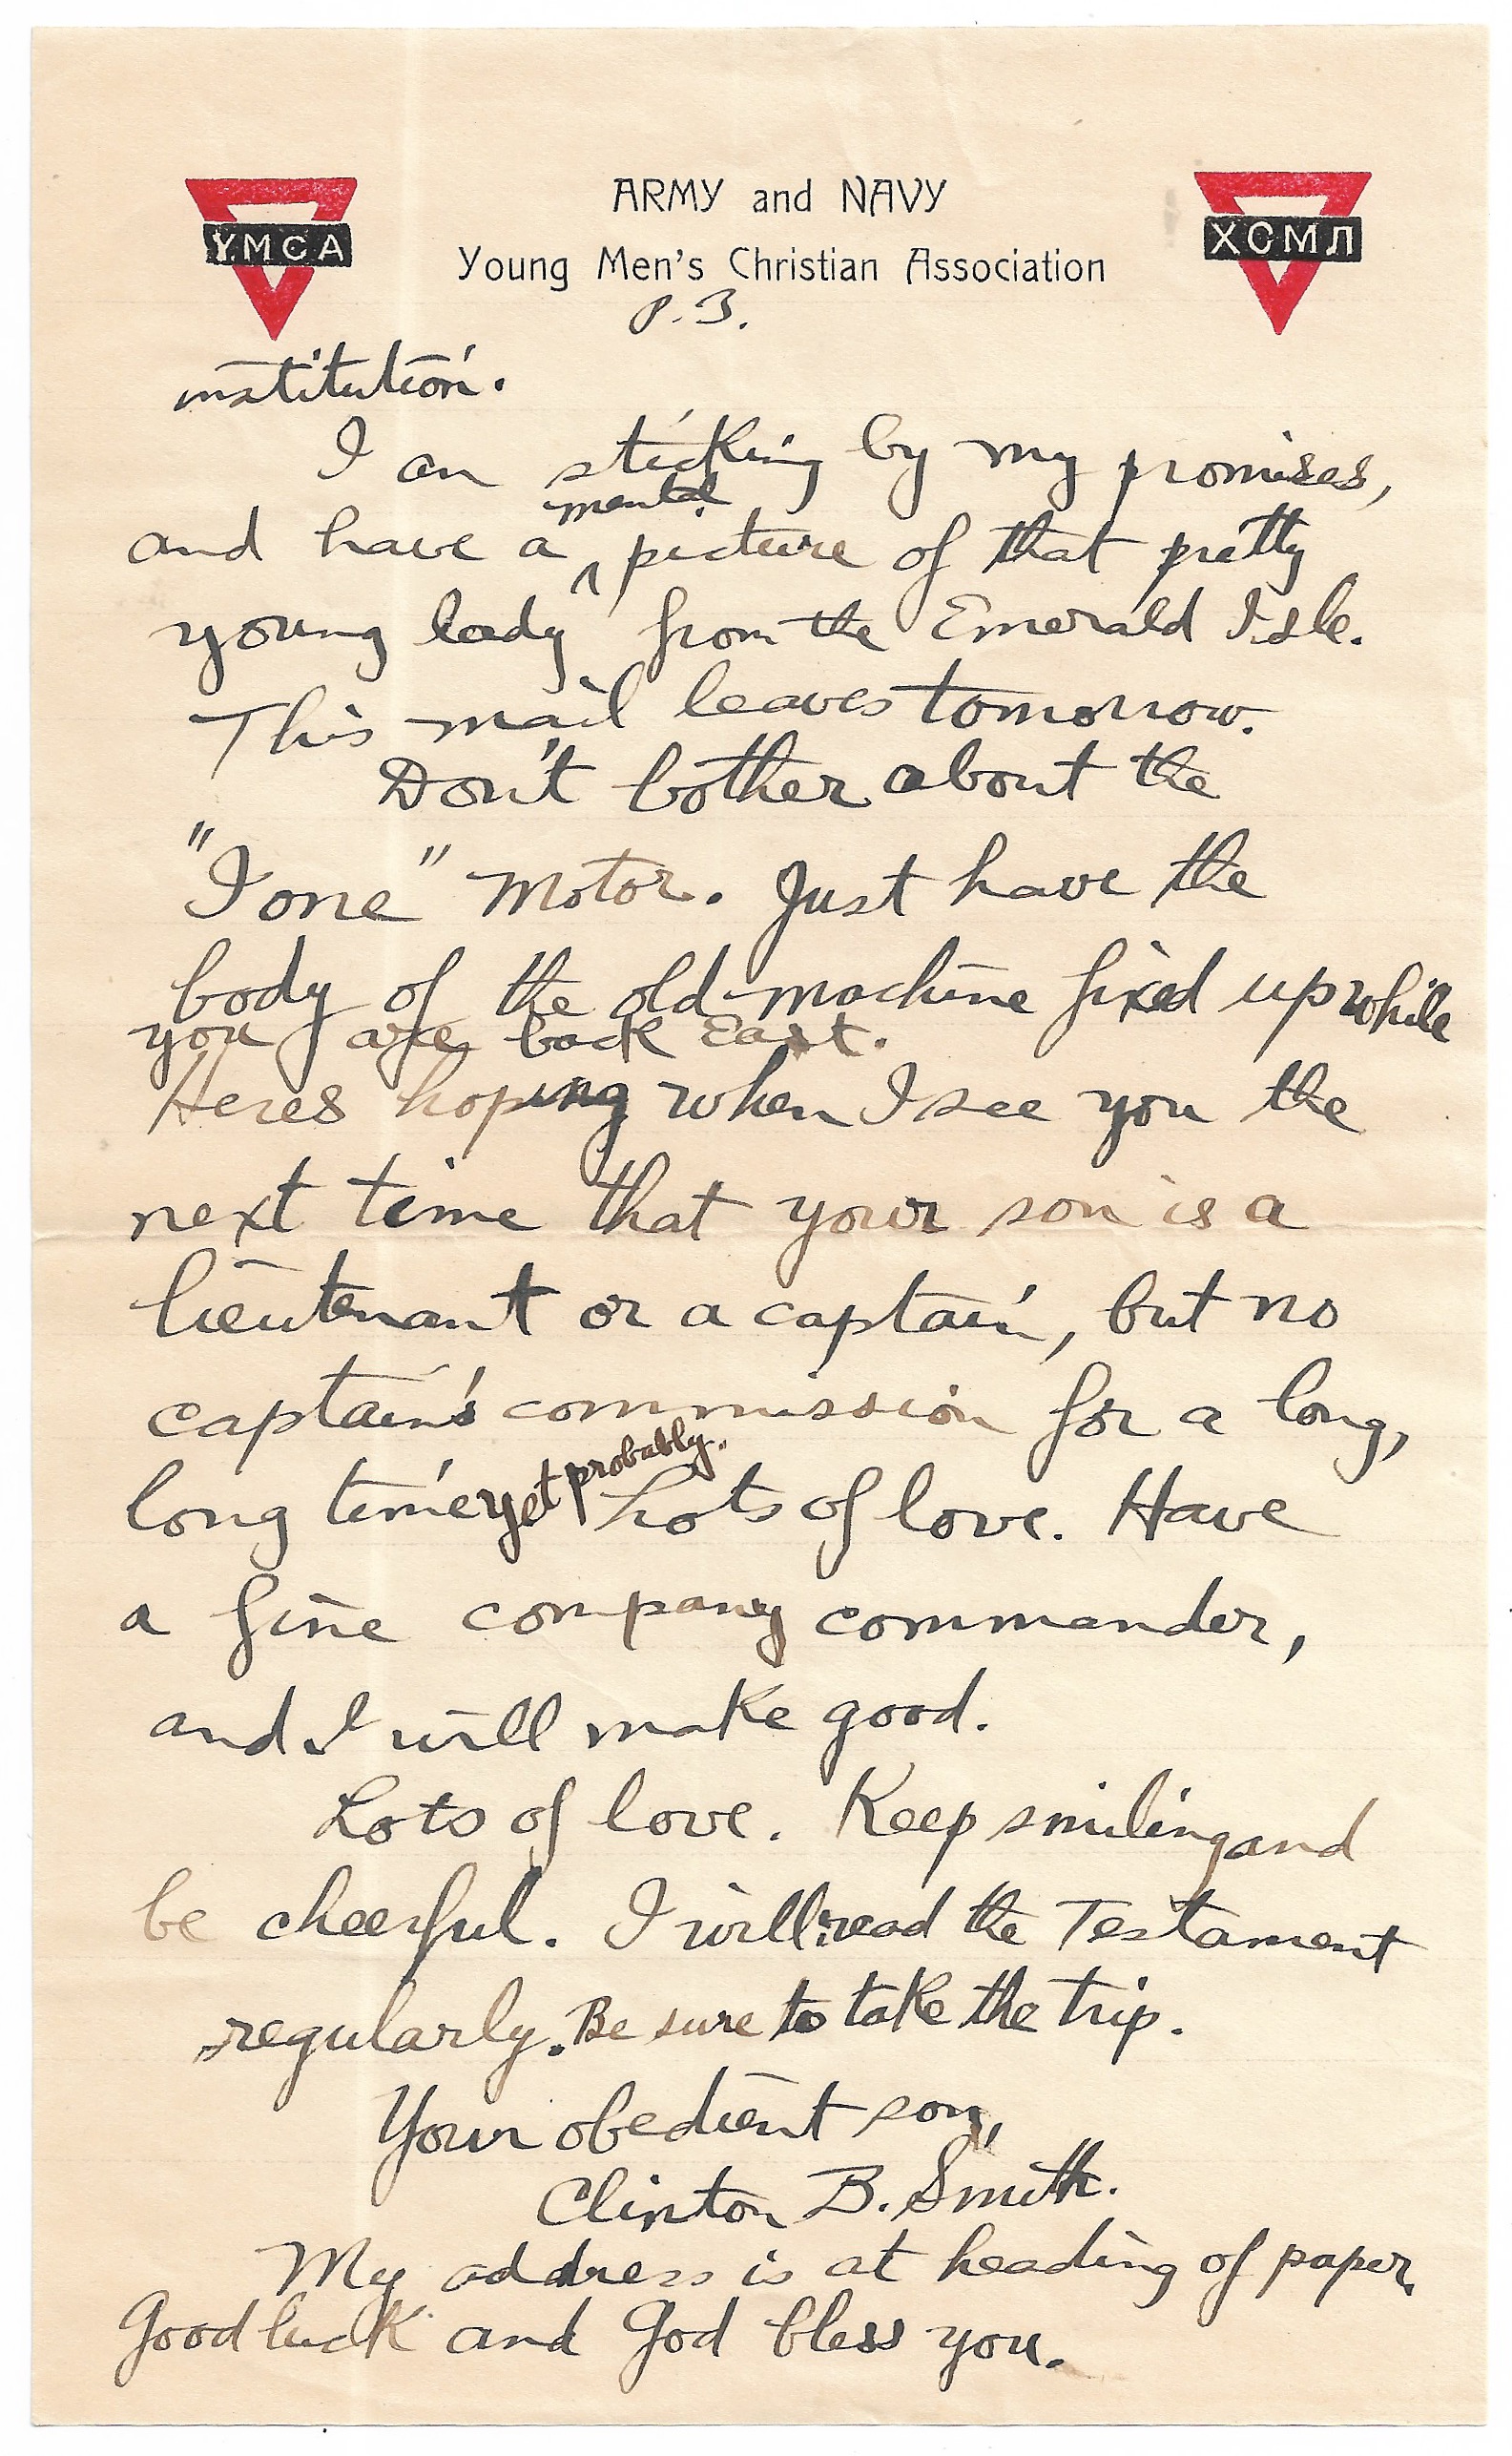 YMCA
ARMY and NAVY
Young Men's Christian Association
ХСМЛ
P. 3.
institution.
I am sticking by my promises,
and have a ^ mental picture of that pretty
young lady from the Emerald Isle.
This mail leaves tomorrow.
Don't bother about the
"Ione" Motor. Just have the
body of the old machine fixed up while
you are back East.
Heres hoping when I see you the
next time that your son is a
lieutenant or a captain, but no
captain's commission for a long,
long time yet probably. Lots of love. Have
a fine company commander,
and I will make good.
Lots of love. Keep smiling and
be cheerful. I will read the Testament
regularly. Be sure to take the trip.
Your obedient son,
Clinton B. Smith.
My address is at heading of paper.
Good luck and God bless you.